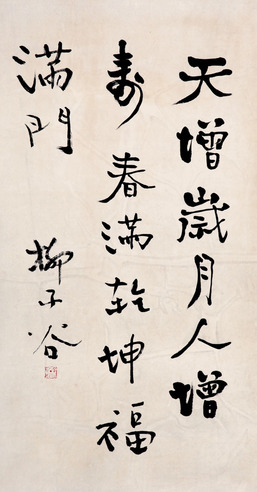 天增歲月人增
壽春滿乾坤福
滿門
柳子谷